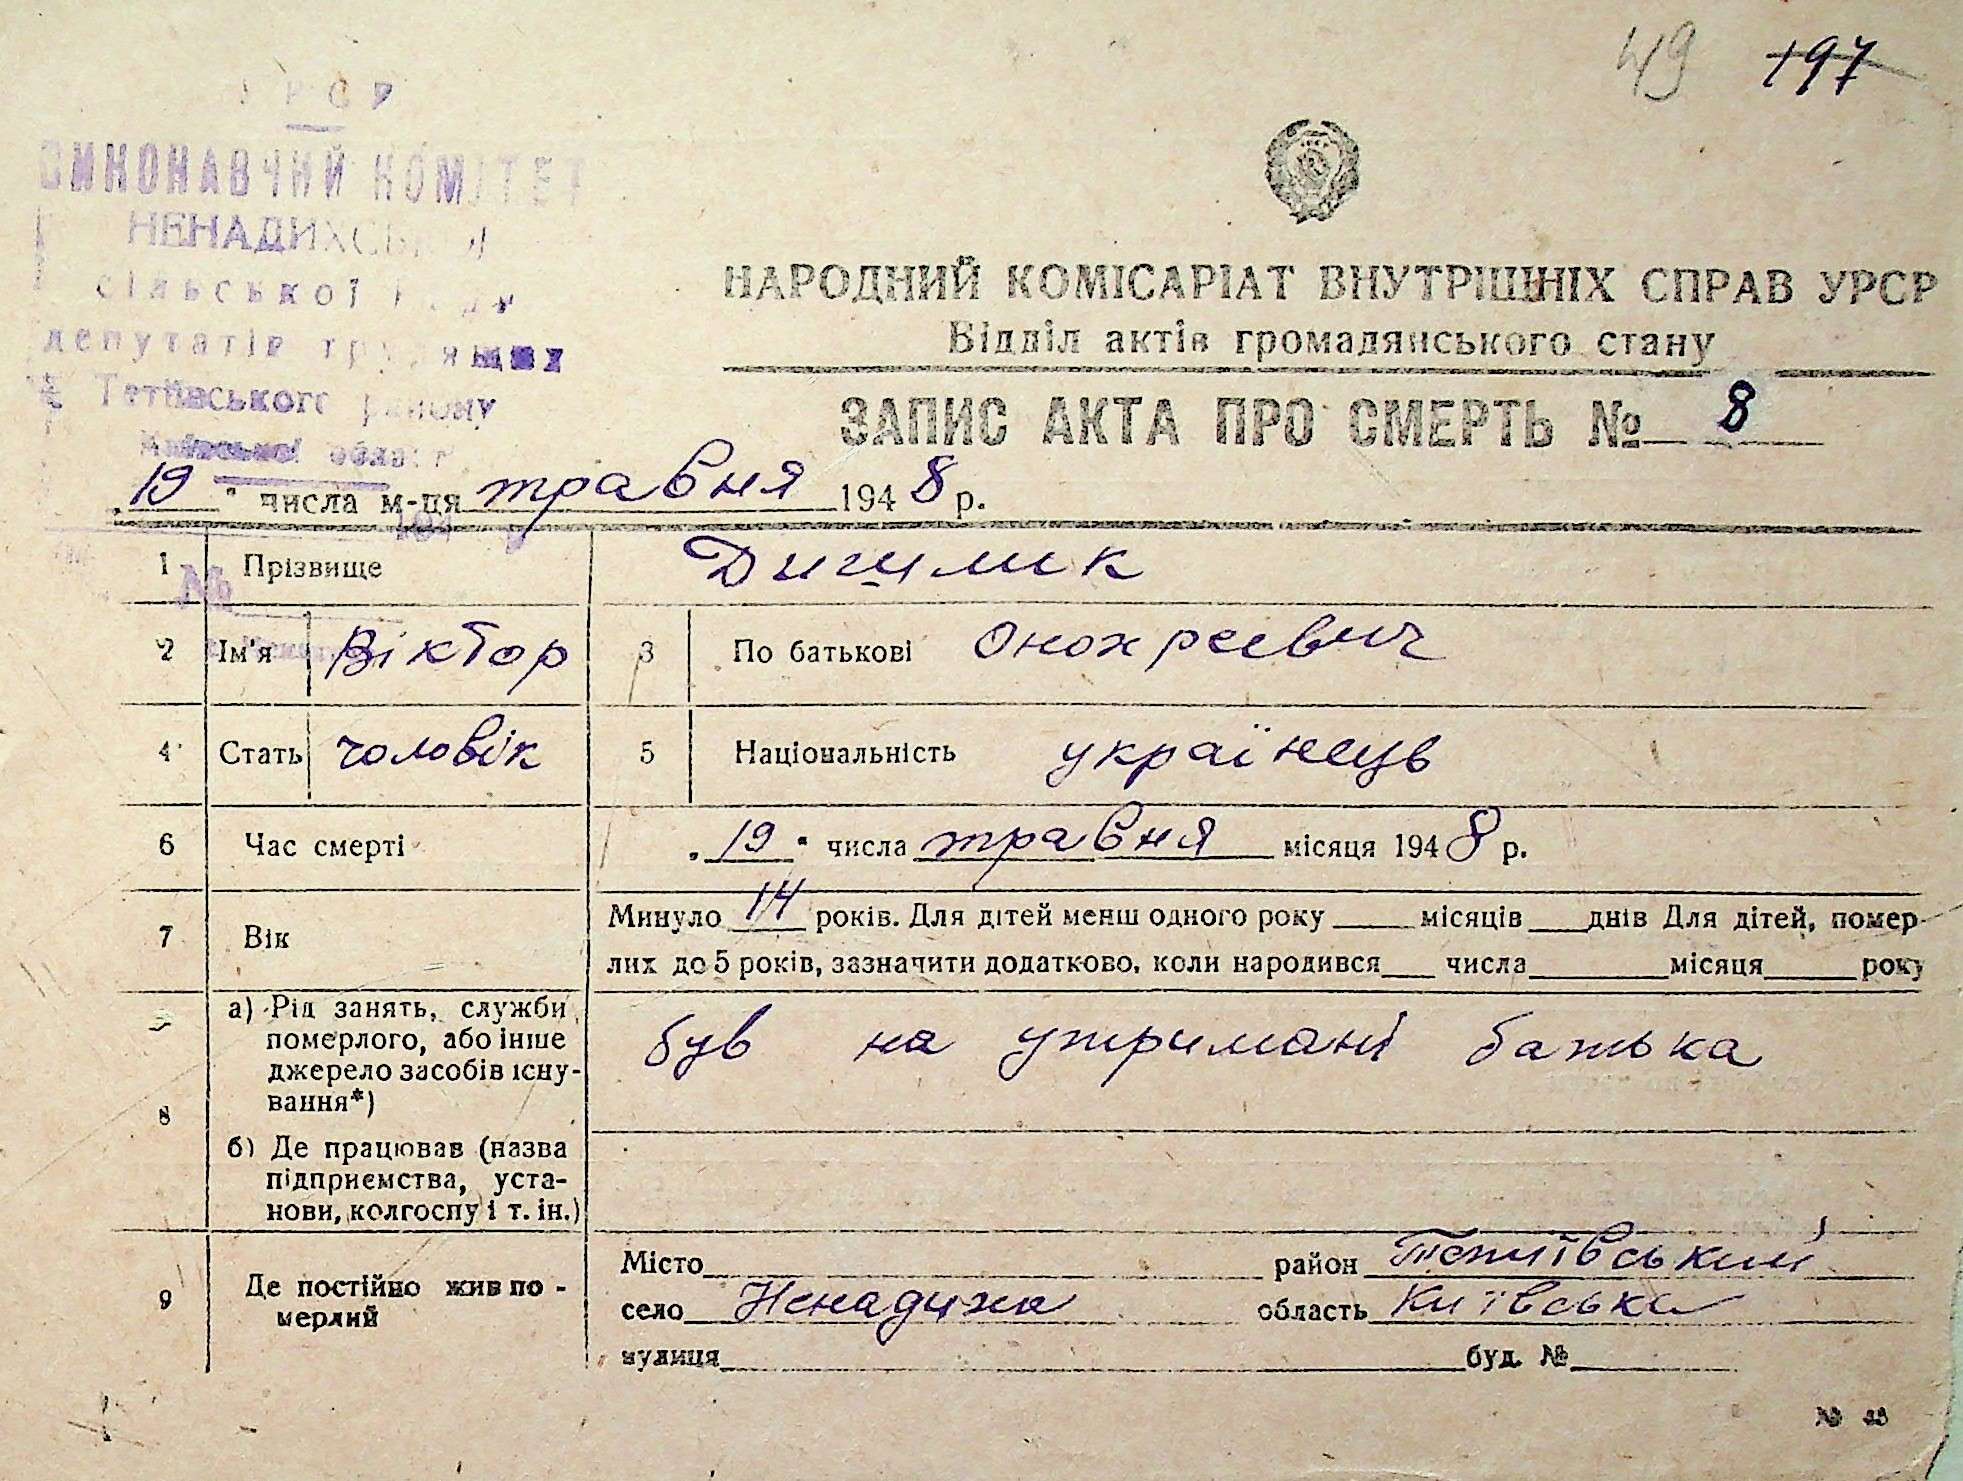 49 197
УРСР
ВИКОНАВЧИЙ КОМІТЕТ
НЕНАДИХСЬКОЇ
сільської Ради
депутатів трудящих
Тетіївського району
Київської області
НАРОДНИЙ КОМІСАРІАТ ВНУТРІШНІХ СПРАВ УРСР
Відділ актів громадянського стану
ЗАПИС АКТА ПРО СМЕРТЬ № 8
„19“ числа м-ця травня 1948 р.
1 Прізвище Дигилик
№
2 Ім'я Віктор 3 По батькові Онохреєвич
4 Стать чоловік 5 Національність українець
6 Час смерті „19“ числа травня місяця 1948 р.
7 Вік Минуло 14 років. Для дітей менш одного року ____ місяців ___ днів Для дітей, помер-
лих до 5 років, зазначити додатково, коли народився ___ числа ____ місяця ____ року
8 а) Рід занять, служби померлого, або інше джерело засобів існу-вання*) був на утримані батька
б) Де працював (назва підприємства, уста-нови, колгоспу і т. ін.)
9 Де постійно жив по-мерлий Місто ____ район Тетіївський
село Ненадиха область Київська
вулиця ____ буд. № ____